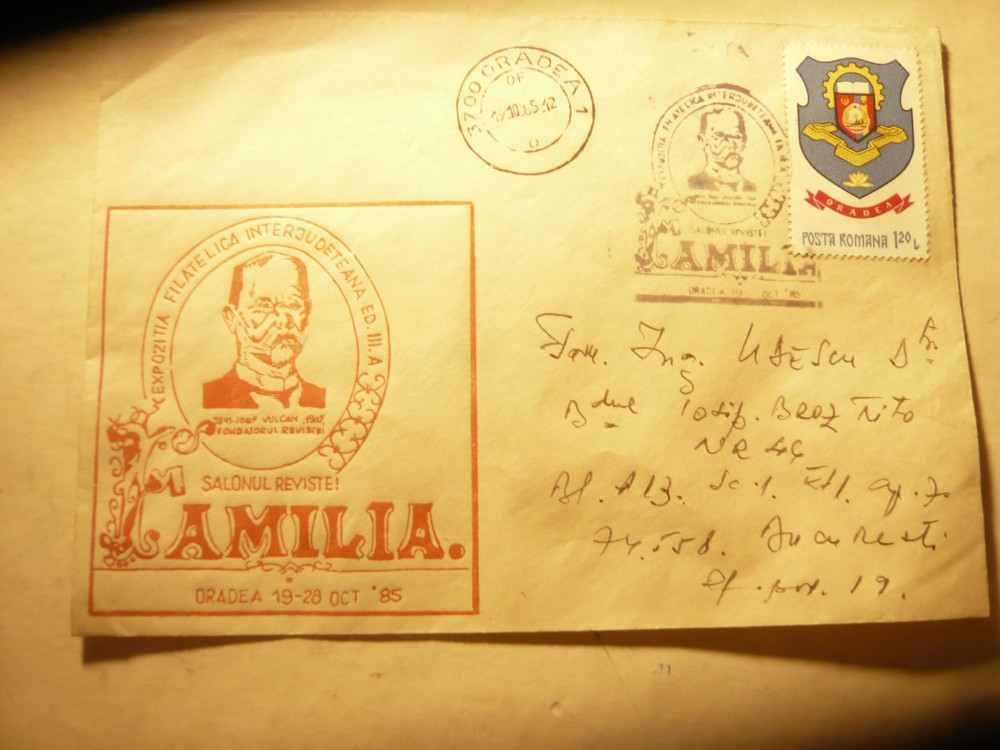 3700 ORADEA 1
OF
19.10.85.12
EXPOZITIA FILATELICA INTERJUDETEANA
SALONUL REVISTEI
FAMILIA
ORADEA 19 OCT '85
ORADEA
POSTA ROMANA 1,20 L
EXPOZITIA FILATELICA INTERJUDETEANA ED. III. A
1841-IOSIF VULCAN 1907
FONDATORUL REVISTEI
SALONUL REVISTEI
FAMILIA.
ORADEA 19-28 OCT '85
Tov. Ing. UTESCU
Bdul Iosip. BROZ TITO
NR 44
Bl. A 13. Sc. 1. Et 1. ap. 7.
74.558. Bucuresti
of. pos. 19.